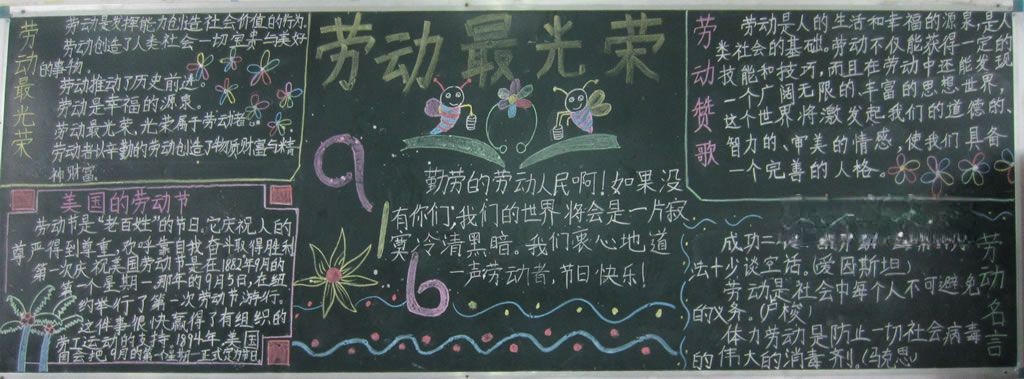 劳动最光荣
劳动是发挥能力创造社会价值的行为.
劳动创造了人类社会一切宝贵与美好
的事物.
劳动推动了历史前进.
劳动是幸福的源泉。
劳动最光荣,光荣属于劳动者.
劳动者以辛勤的劳动创造了物质财富与精
神财富
美国的劳动节
劳动节是“老百姓”的节日.它庆祝人的
尊严得到尊重,欢呼靠自我奋斗取得胜利
第一次庆祝美国劳动节是在1882年9月的
第一个星期一那年的9月5日,在纽
约举行了第一次劳动节游行。
这件事很快赢得了有组织的
劳工运动的支持.1894年,美国
国会把9月的第一个星期一正式定为节日
劳动最光荣
勤劳的劳动人民啊!如果没
有你们,我们的世界将会是一片寂
寞冷清黑暗。我们衷心地道
一声劳动者,节日快乐!
劳动赞歌
劳动是人的生活和幸福的源泉,是人
类社会的基础.劳动不仅能获得一定的
技能和技巧,而且在劳动中还能发现
一个广阔无限的.丰富的思想世界,
这个世界将激发起我们的道德的.
智力的、审美的情感,使我们具备
一个完善的人格。
劳动名言
成功二
法十少谈空话。(爱因斯坦)
劳动是社会中每个人不可避免
的义务。(卢梭)
体力劳动是防止一切社会病毒
的伟大的消毒剂。(马克思)